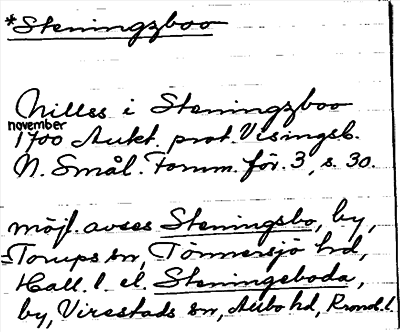 *Steningzboo
Nilles i Steningzboo
november
1700 Aukt. prot. Visingsb.
N. Smål. Fornm. för. 3, s. 30.
möjl. avses Steningsbo, by,
Torups sn, Tönnersjö hd,
Hall. l. el. Steningeboda,
by, Virestads sn, Allbo hd, Kronob. l.